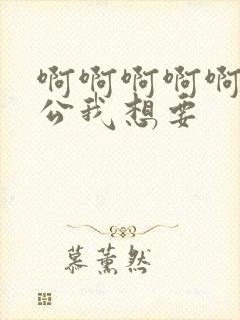 啊啊啊啊啊
公我想要
慕薰然